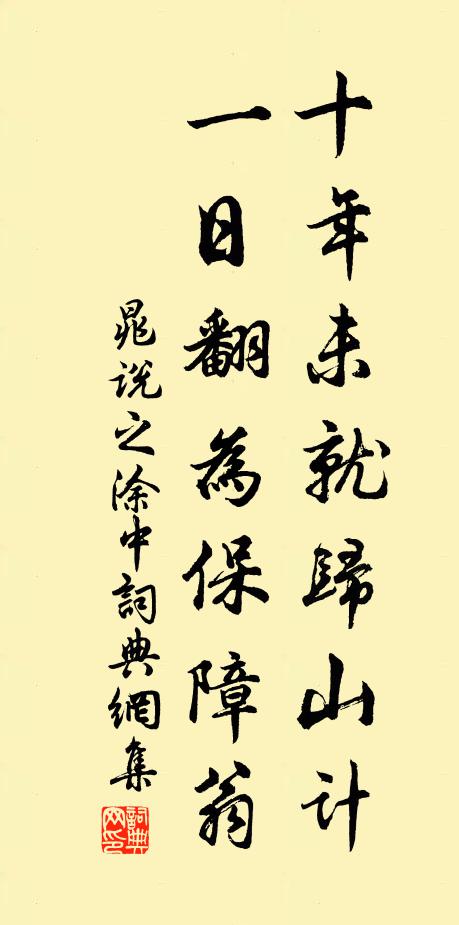 十年未就歸山計
一日翻為保障翁
晁說之涂中詞典網集
詞典网印